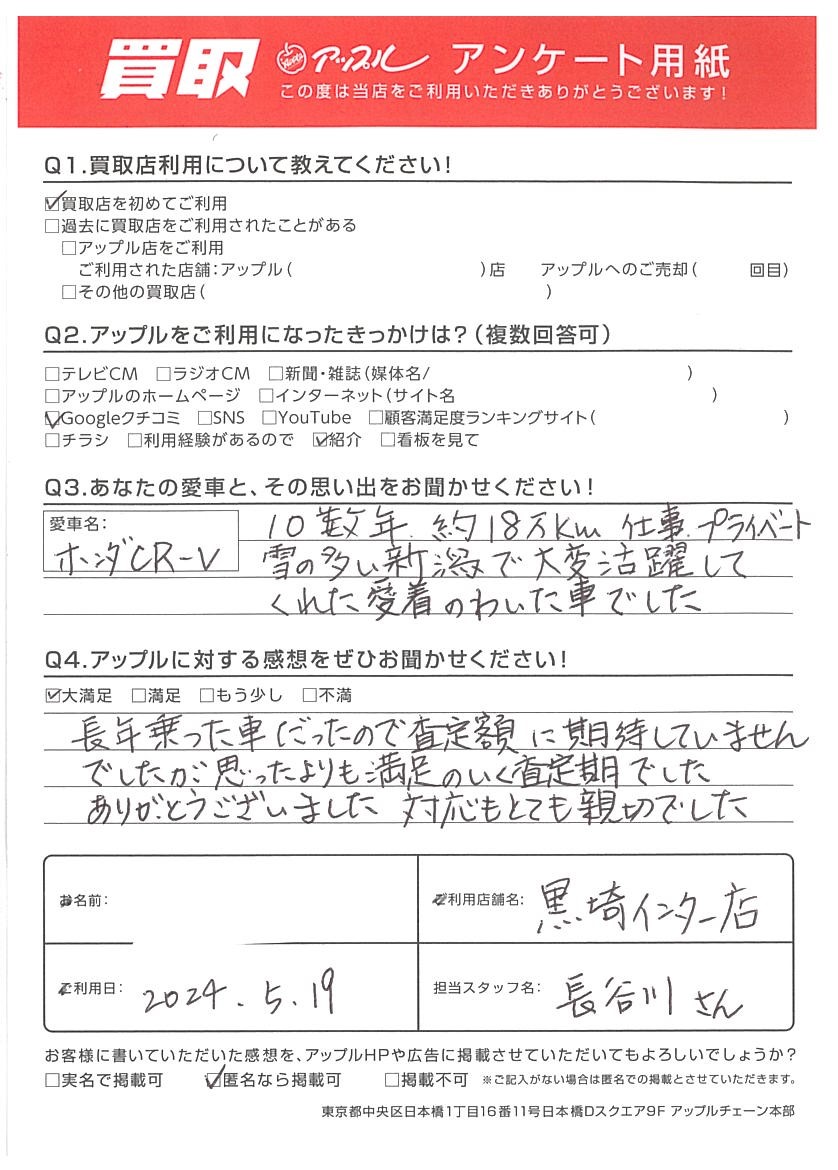 買取 Apple アップル アンケート用紙
この度は当店をご利用いただきありがとうございます!
Q1.買取店利用について教えてください!
☑買取店を初めてご利用
□過去に買取店をご利用されたことがある
□アップル店をご利用
ご利用された店舗:アップル( )店 アップルへのご売却( 回目)
□その他の買取店( )
Q2.アップルをご利用になったきっかけは?(複数回答可)
□テレビCM □ラジオCM □新聞・雑誌(媒体名/ )
□アップルのホームページ □インターネット(サイト名 )
☑Googleクチコミ □SNS □YouTube □顧客満足度ランキングサイト( )
□チラシ □利用経験があるので ☑紹介 □看板を見て
Q3.あなたの愛車と、その思い出をお聞かせください!
愛車名: ホンダCR-V
10数年 約18万Km 仕事.プライベート
雪の多い新潟で大変活躍して
くれた愛着のわいた車でした
Q4.アップルに対する感想をぜひお聞かせください!
☑大満足 □満足 □もう少し □不満
長年乗った車だったので査定額に期待していません
でしたが思ったよりも満足のいく査定期でした
ありがとうございました 対応もとても親切でした
お名前:
ご利用店舗名: 黒埼インター店
ご利用日: 2024.5.19
担当スタッフ名: 長谷川さん
お客様に書いていただいた感想を、アップルHPや広告に掲載させていただいてもよろしいでしょうか?
□実名で掲載可 ☑匿名なら掲載可 □掲載不可 ※ご記入がない場合は匿名での掲載とさせていただきます。
東京都中央区日本橋1丁目16番11号日本橋Dスクエア9F アップルチェーン本部